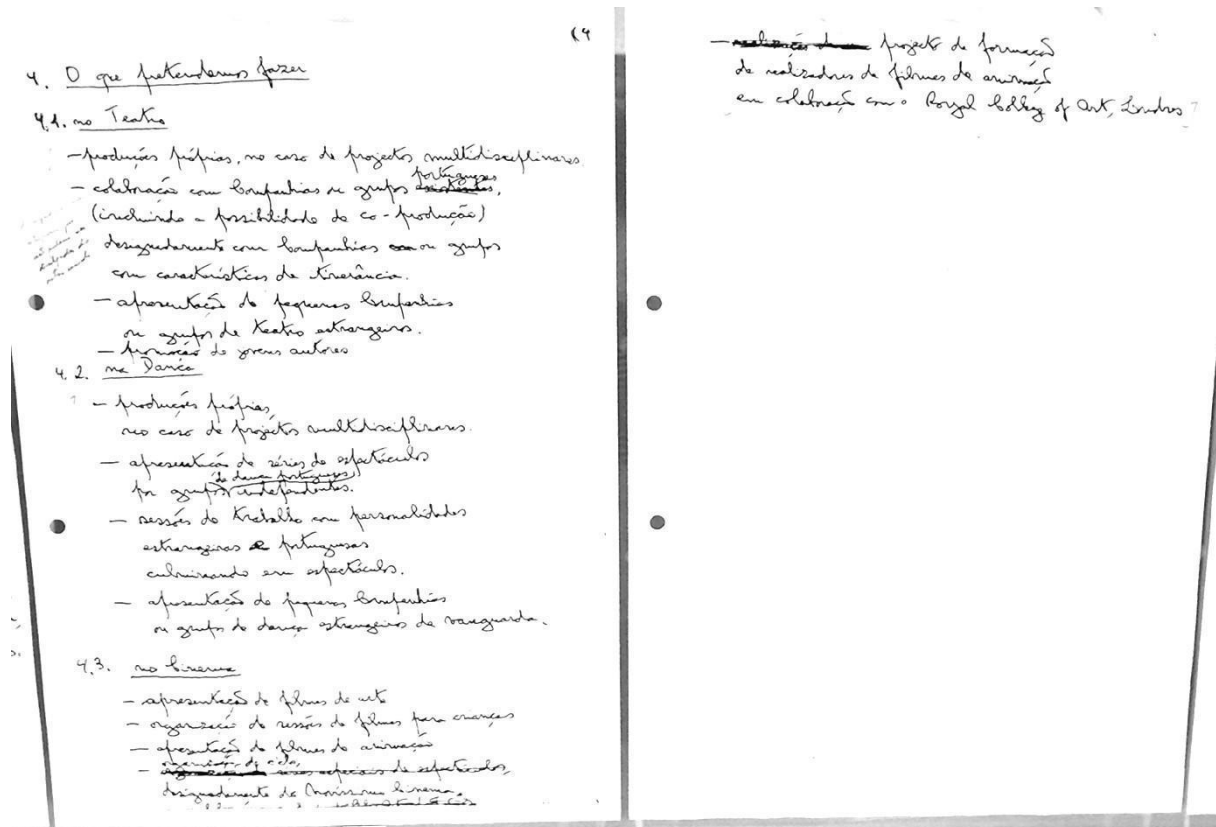 64
4. O que pretendemos fazer
4.1. no Teatro
- produções próprias, no caso de projectos multidisciplinares.
- colaboração com Companhias ou grupos existentes, portugueses
(incluindo a possibilidade de co-produção)
designadamente com Companhias ou grupos
com características de itinerância.
- apresentação de pequenas Companhias
ou grupos de teatro estrangeiros.
- promoção de jovens autores
4.2. na Dança
? - produções próprias,
no caso de projectos multidisciplinares.
- apresentação de séries de espectáculos
de dança portugueses
por grupos independentes.
- sessões de trabalho com personalidades
estrangeiras e portuguesas
culminando em espectáculos.
- apresentação de pequenas Companhias
ou grupos de dança estrangeiros de vanguarda.
4.3. no Cinema
- apresentação de filmes de arte
- organização de sessões de filmes para crianças
- apresentação de filmes de animação
organização de ciclos,
- especiais de espectáculos,
designadamente de Novíssimo Cinema.
- realização de projecto de formação
de realizadores de filmes de animação
em colaboração com o Royal College of Art, Londres ?